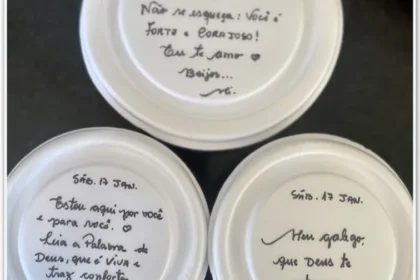 Não se esqueça: Você é
FORTE e CORAJOSO!
Eu te amo ♡
Beijos...
SÁB. 17 JAN.
Estou aqui por você
e para você. ♡
Leia a Palavra de
Deus, que é viva e
traz conforto
SÁB. 17 JAN.
Meu galego,
que Deus te